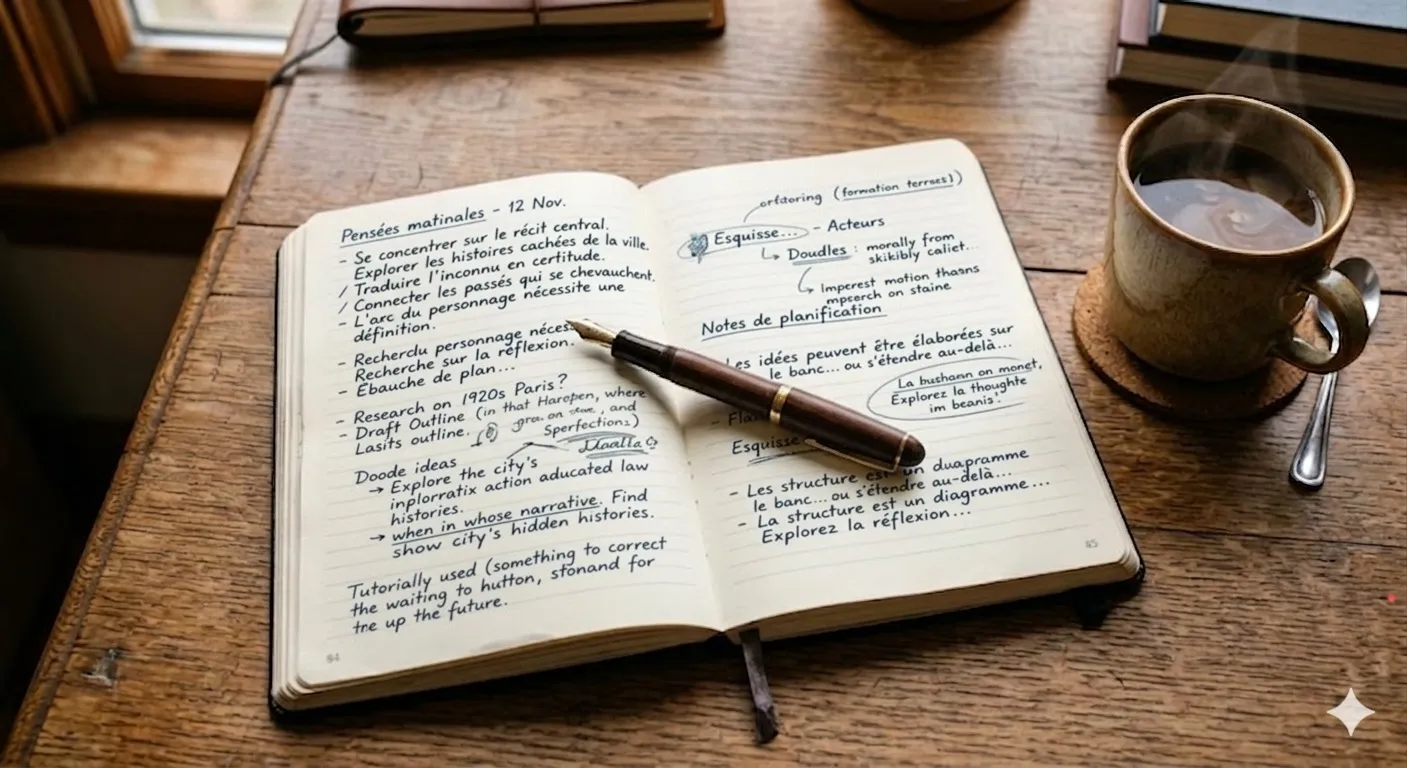 Pensées matinales - 12 Nov.
- Se concentrer sur le récit central.
Explorer les histoires cachées de la ville.
/ Traduire l'inconnu en certitude.
/ Connecter les passés qui se chevauchent.
- L'arc du personnage nécessite une
définition.
- Recherdu personnage néces
Recherche sur la réflexion.
- Ébauche de plan...
- Research on 1920s Paris?
- Draft Outline (in that Haropen, where
Lasits outline. on and
Sperfections)
Doode ideas
→ Explore the city's
inplorratix action aducated law
histories.
→ when in whose narrative. Find
show city's hidden histories.
Tutorially used (something to correct
the waiting to hutton, stonand for
tre up the future.
84
(formation terrses)
Esquisse... - Acteurs
Doudles : morally from
skikibly caliet...
Imperest motion thasns
mpcerch on staine
Notes de planification
Les idées peuvent être élaborées sur
le banc... ou s'étendre au-delà...
La bushasn on monet,
Explorez la thoughte
im beanis.'
- Flan
Esquisse
- Les structure est un duapramme
le banc... ou s'étendre au-delà...
- La structure est un diagramme...
Explorez la réflexion...
85